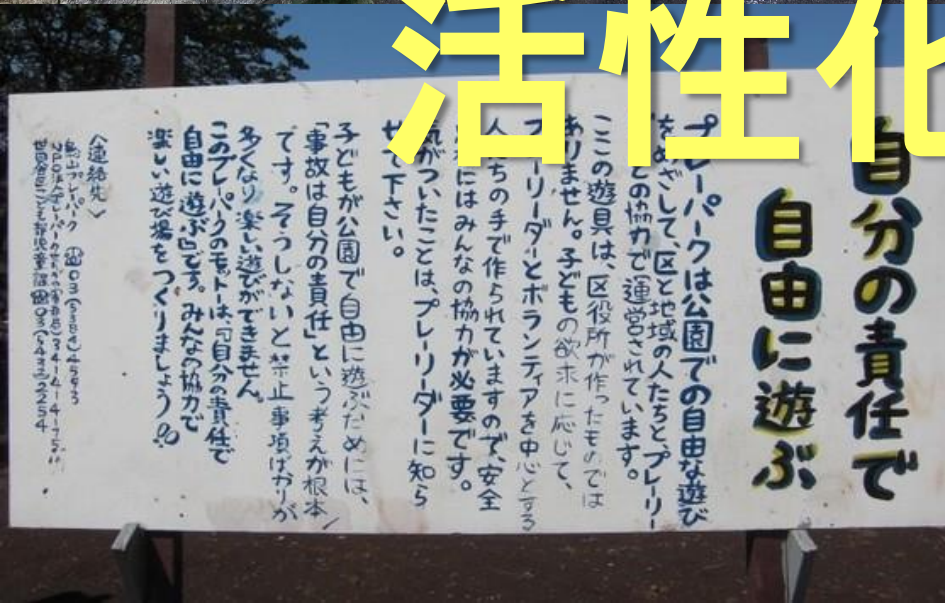 活性化
自分の責任で
自由に遊ぶ
プレーパークは公園での自由な遊び
をめざして、区と地域の人たちと、プレーリー
との協力で運営されています。
ここの遊具は、区役所が作ったものでは
ありません。子どもの欲求に応じて、
プレーリーダーとボランティアを中心とする
人たちの手で作られていますので、安全
にはみんなの協力が必要です。
気がついたことは、プレーリーダーに知ら
せて下さい。
子どもが公園で自由に遊ぶためには、
「事故は自分の責任」という考えが根本
です。そうしないと禁止事項ばかりが
多くなり楽しい遊びができません。
このプレーパークのモットーは、「自分の責任で
自由に遊ぶ」です。みんなの協力で
楽しい遊び場をつくりましょう!!
〈連絡先〉
プレーパーク ☎03
NPO法人プレーパーク
世田谷